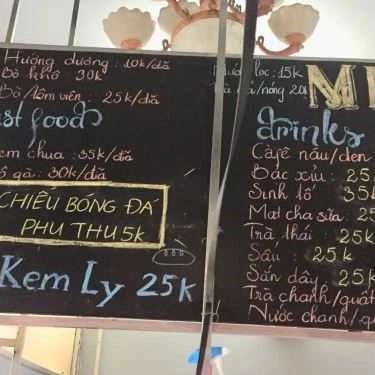 Hướng dương : 10k/đĩa
Bò khô 30k
Bò/tôm viên : 25k/đĩa
st food
em chua : 35k/đĩa
gà : 30k/đĩa
CHIẾU BÓNG ĐÁ
PHỤ THU 5k
Kem Ly 25k
lọc : 15k
/nóng 20k
M
drinks
Cafê nâu/đen
Bạc xỉu : 25
Sinh tố 35k
Mat cha sữa : 25
Trà thái : 25k
Sấu : 25k
Sắn dây 25k
Trà chanh/quất
Nước chanh/qu